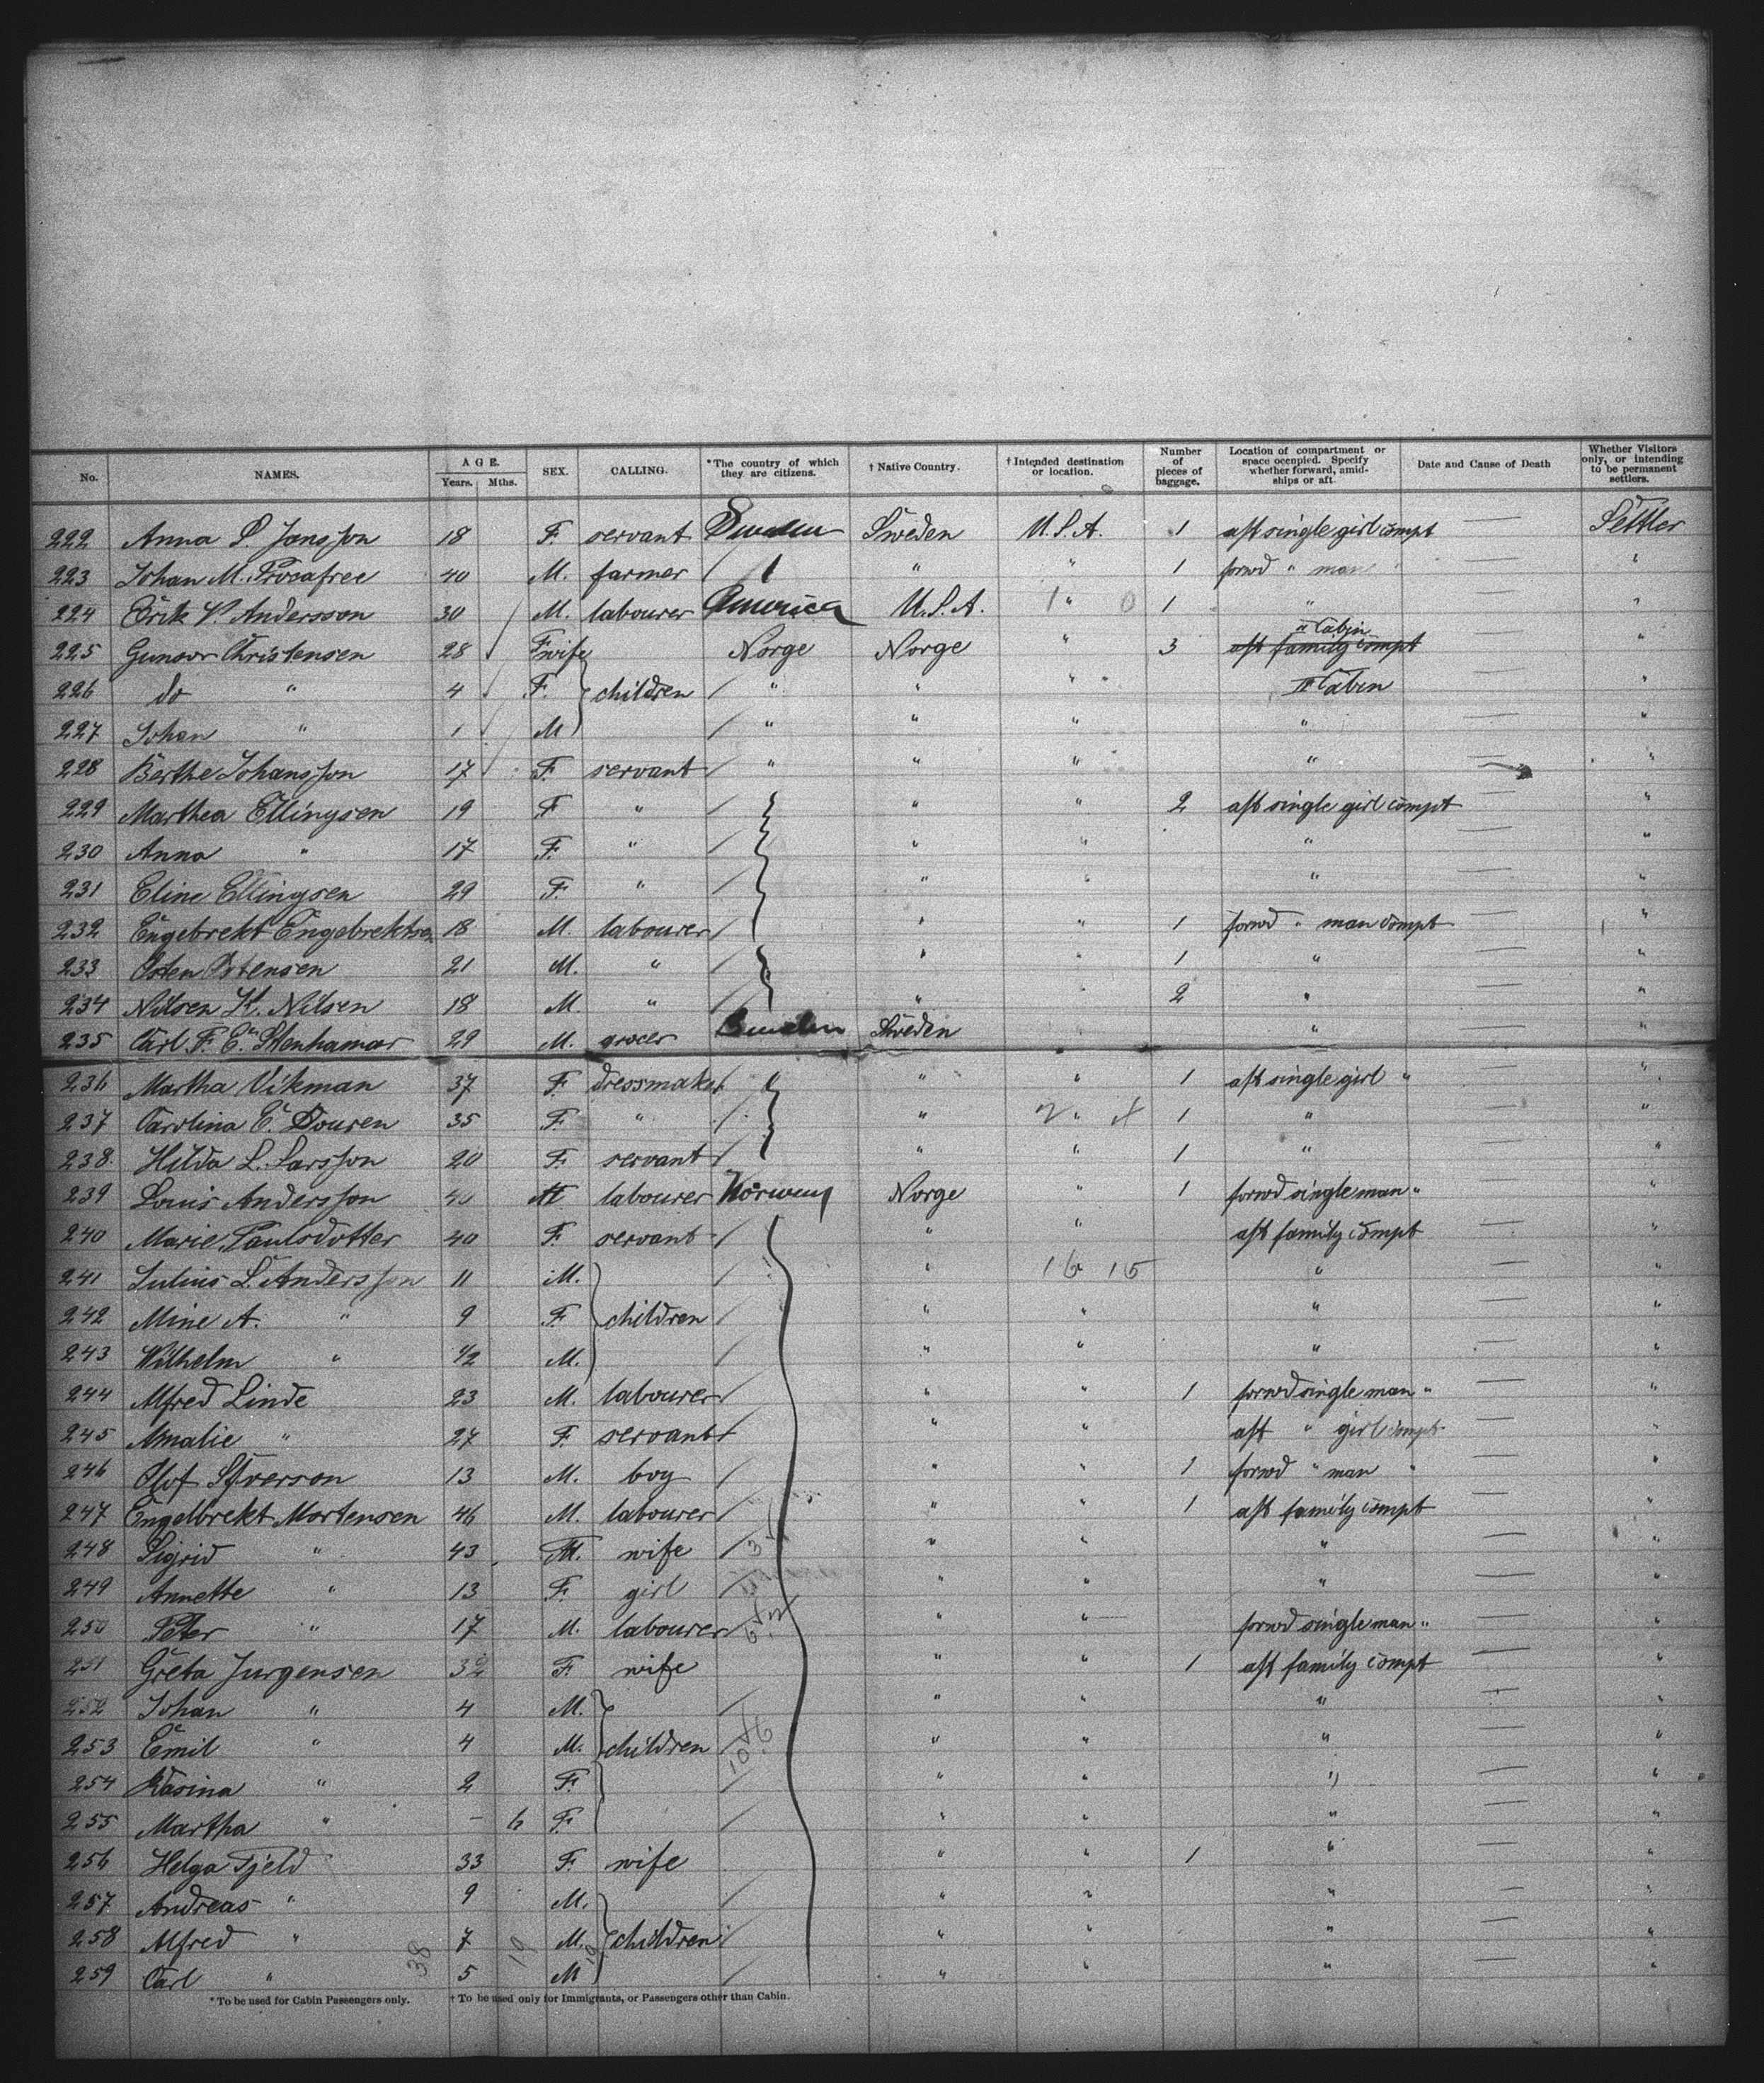 No. NAMES. AGE. Years. Mths. SEX. CALLING. *The country of which they are citizens. † Native Country. † Intended destination or location. Number of pieces of baggage. Location of compartment or space occupied. Specify whether forward, amidships or aft. Date and Cause of Death Whether Visitors only, or intending to be permanent settlers.
222 Anna S. Jansson 18 F. servant Sweden Sweden U.S.A. 1 aft single girl compt — Settler
223 Johan M. 40 M. farmer / " " 1 forwd " man " — "
224 Erik V. Andersson 30 M. labourer America U.S.A. 1 " 0 1 " — "
225 Gunvor Christensen 28 F wife Norge Norge " 3 aft family compt II Cabin — "
226 do " 4 F. children / " " " II Cabin — "
227 Johan " 1 M / " " " " — "
228 Berthe Johansson 17 F. servant / " " " " — "
229 Marthea Ellingsen 19 F " / " " 2 aft single girl compt — "
230 Anna " 17 F. " / " " " — "
231 Eline Ellingsen 29 F. " / " " " — "
232 Engebrekt Engebrektsen 18 M. labourer / " " 1 forwd " man compt — "
233 Osten Ostensen 21 M. " / " " 1 " — "
234 Nilsen K. Nilsen 18 M. " / " " 2 " — "
235 Carl F. E. Stenhamar 29 M. grocer Sweden Sweden " " — "
236 Martha Vikman 37 F. dressmaker / " " 1 aft single girl " — "
237 Carolina E. 35 F. " / " 2 " 1 " — "
238 Hilda L. Larsson 20 F. servant / " " 1 " — "
239 Louis Andersson 40 M labourer Norway Norge " 1 forwd single man " — "
240 Marie Paulsdotter 40 F. servant / " " aft family compt — "
241 Julius L. Andersson 11 M. / " 16 15 " — "
242 Mine A. " 9 F. children / " " " — "
243 Wilhelm " 1/2 M. / " " " — "
244 Alfred Linde 23 M. labourer / " " 1 forwd single man " — "
245 Amalie " 27 F. servant / " " aft " girl compt — "
246 Olof Syverson 13 M. boy / " " 1 forwd " man " — "
247 Engelbrekt Mortensen 46 M. labourer / " " 1 aft family compt — "
248 Sigrid " 43 wife / " " " — "
249 Annette " 13 F. girl / " " " — "
250 Peter " 17 M. labourer / " " forwd single man " — "
251 Greta Jurgensen 32 F. wife " " 1 aft family compt — "
252 Johan " 4 M. / " " " — "
253 Emil " 4 M. children / " " " — "
254 " 2 F. / " " " — "
255 Martha " – 6 F. / " " " — "
256 Helga Fjeld 33 F. wife " " 1 " — "
257 Andreas " 9 M. / " " " — "
258 Alfred " 7 M. children / " " " — "
259 Carl " 5 M / " " " — "
38 19 19
* To be used for Cabin Passengers only. † To be used only for Immigrants, or Passengers other than Cabin.